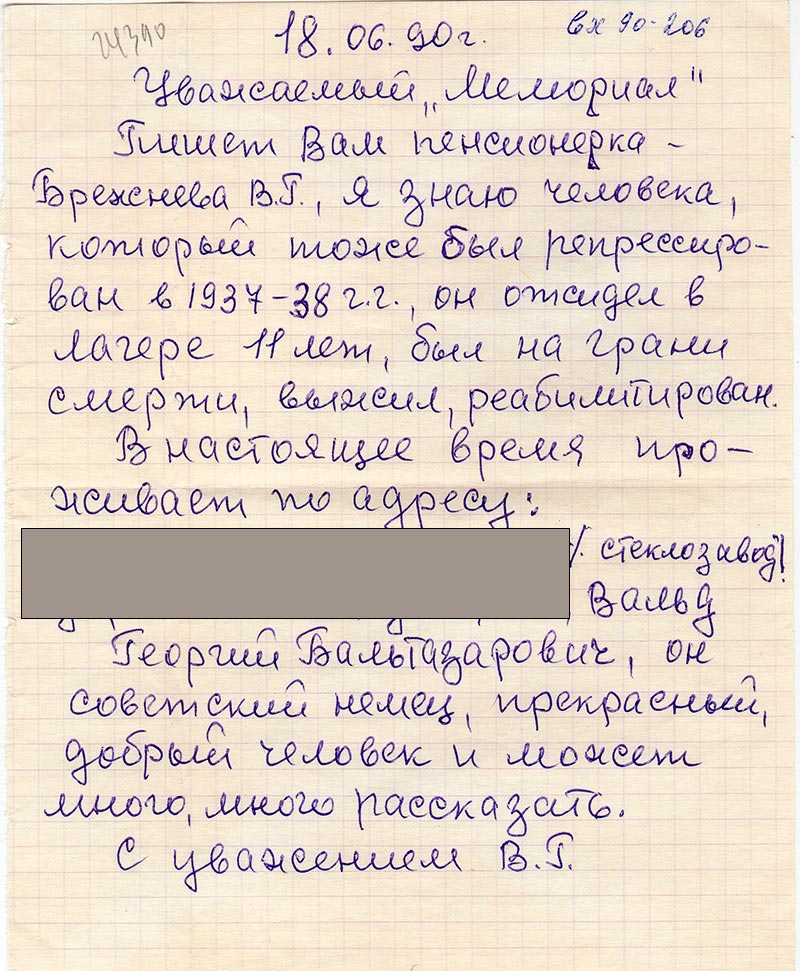 24390
18.06.90г.
вх 90-206
Уважаемый „Мемориал"
Пишет Вам пенсионерка -
Брежнева В.Г., я знаю человека,
который тоже был репрессиро-
ван в 1937-38 г.г., он отсидел в
лагере 11 лет, был на грани
смерти, выжил, реабилитирован.
В настоящее время про-
живает по адресу:
стеклозавод!
Вальд
Георгий Бальтазарович, он
советский немец, прекрасный,
добрый человек и может
много, много рассказать.
С уважением В.Г.